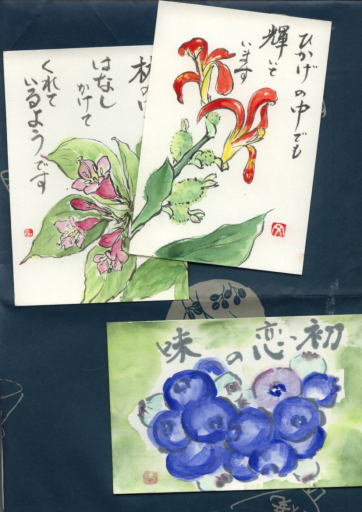 ひかげの中でも
輝いて
います
はなし
かけて
くれて
いるようです
初恋の味